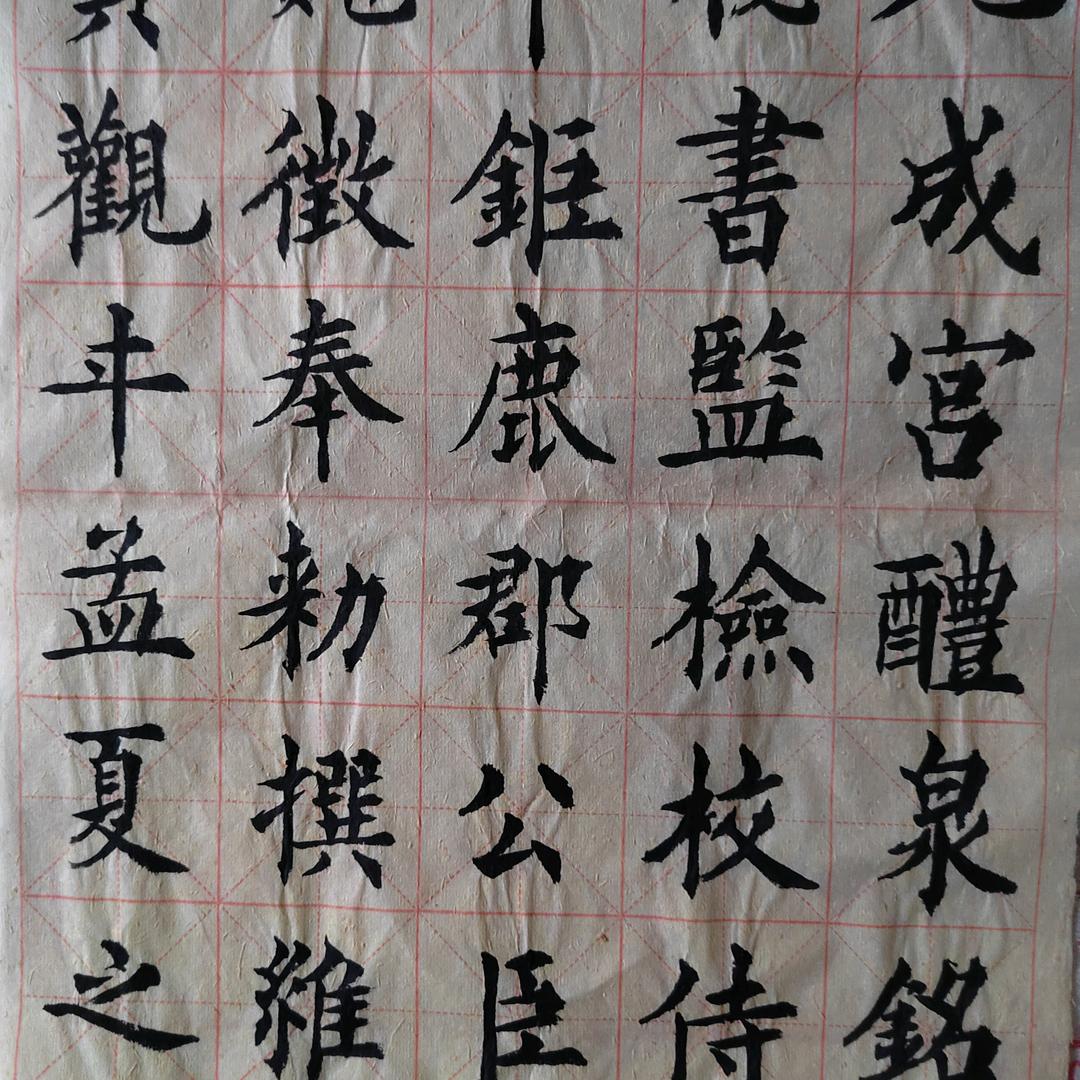 成宮醴泉銘
書監檢校侍
鉅鹿郡公臣
徵奉勑撰維
觀年孟夏之